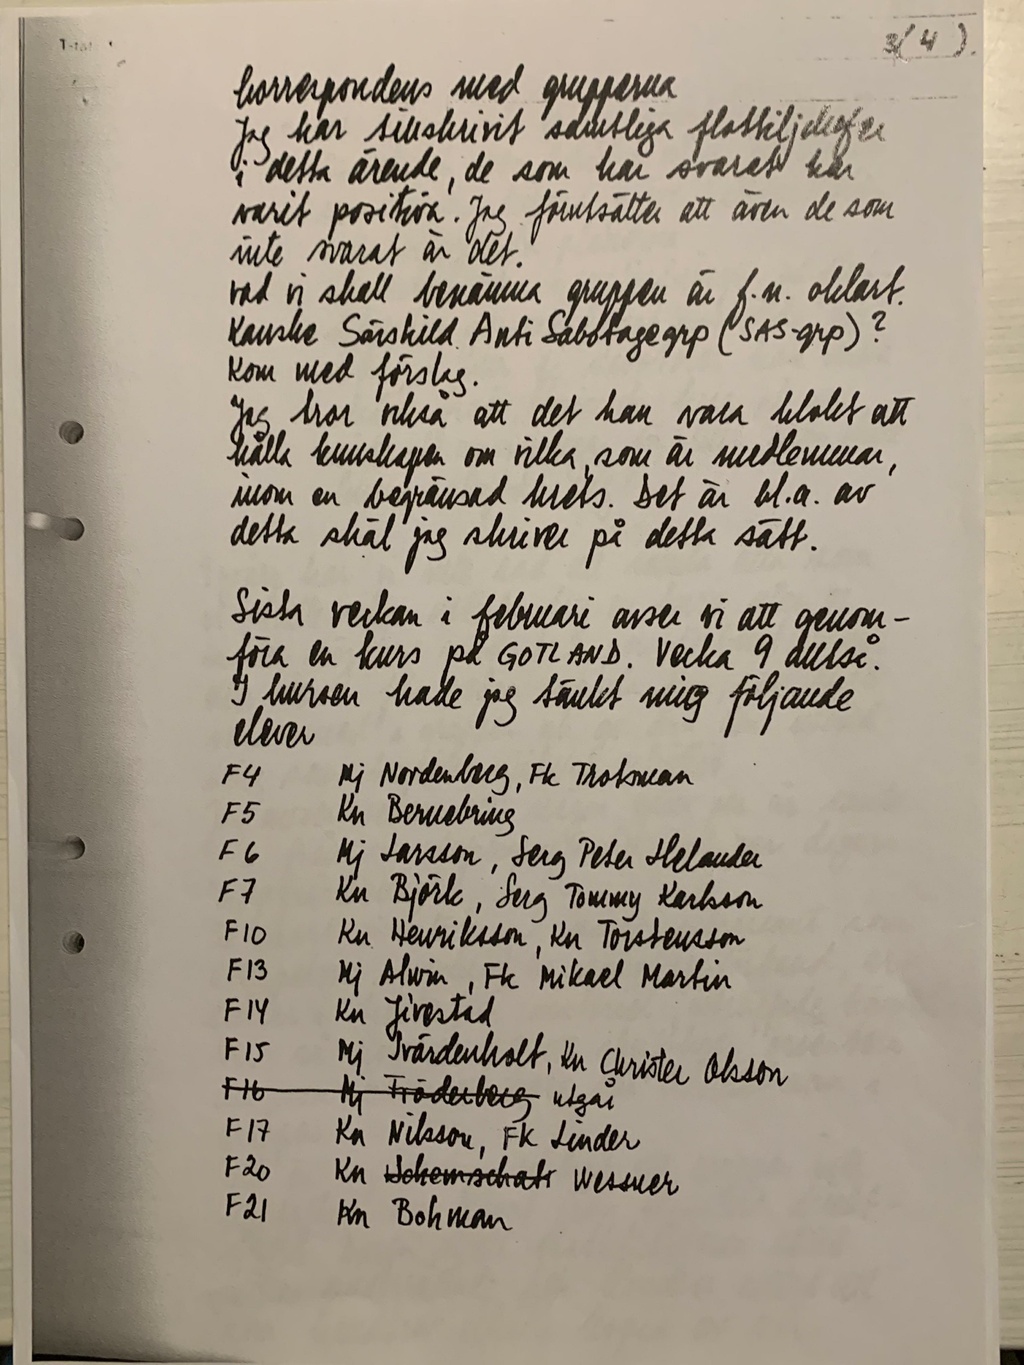 3(4).
korrespondens med grupperna
Jag har tillskrivit samtliga flottiljchefer
i detta ärende, de som har svarat har
varit positiva. Jag förutsätter att även de som
inte svarat är det.
Vad vi skall benämna gruppen är f.n. oklart.
Kanske Särskild Anti Sabotagegrp (SAS-grp)?
Kom med förslag.
Jag tror också att det kan vara klokt att
hålla kunskapen om vilka, som är medlemmar,
inom en begränsad krets. Det är bl.a. av
detta skäl jag skriver på detta sätt.
Sista veckan i februari avser vi att genom-
föra en kurs på GOTLAND. Vecka 9 alltså.
I kursen hade jag tänkt mig följande
elever
F4 Mj Nordenberg, Fk Trotsman
F5 Kn Bernebring
F6 Mj Larsson, Serg Peter Helander
F7 Kn Björk, Serg Tommy Karlsson
F10 Kn Henriksson, Kn Torstensson
F13 Mj Alwin, Fk Mikael Martin
F14 Kn Jivestad
F15 Mj Svärdenholt, Kn Christer Olsson
F16 Mj Fröderberg utgår
F17 Kn Nilsson, FK Linder
F20 Kn Wessner
F21 Kn Bohman